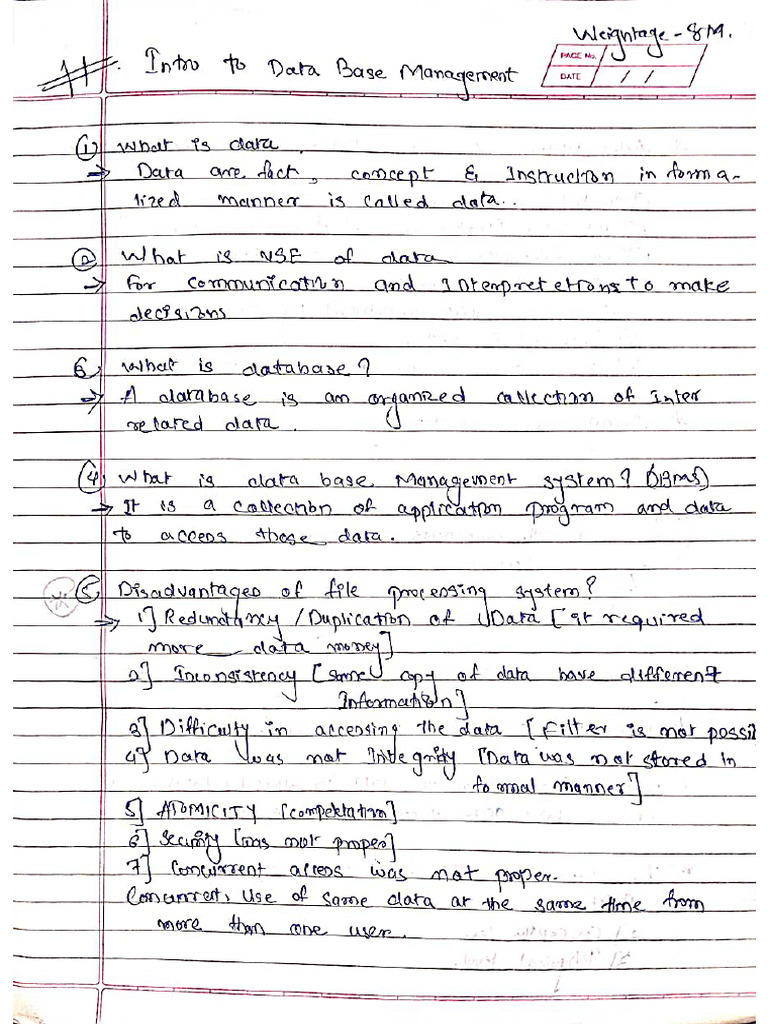 Weightage - 8M.
#. Intro to Data Base Management
PAGE No.
DATE / /
① What is data.
→ Data are fact, concept & Instruction in forma-
lized manner is called data..
② What is USE of data
→ for communication and Interpretetions to make
decisions
③ What is database?
→ A database is an organized collection of Inter
related data.
④ What is data base Management system? (DBMS)
→ It is a collection of application program and data
to access those data.
⑤ Disadvantages of file processing system?
→ 1] Redundancy / Duplication of Data [It required
more data money]
2] Inconsistency [same copy of data have different
Information]
3] Difficulty in accessing the data [Filter is not possi
4] Data was not Integrity [Data was not stored in
formal manner]
5] ATOMICITY
6] Security [was not proper]
7] Concurrent access was not proper.
Concurrent, Use of same data at the same time from
more than one user.